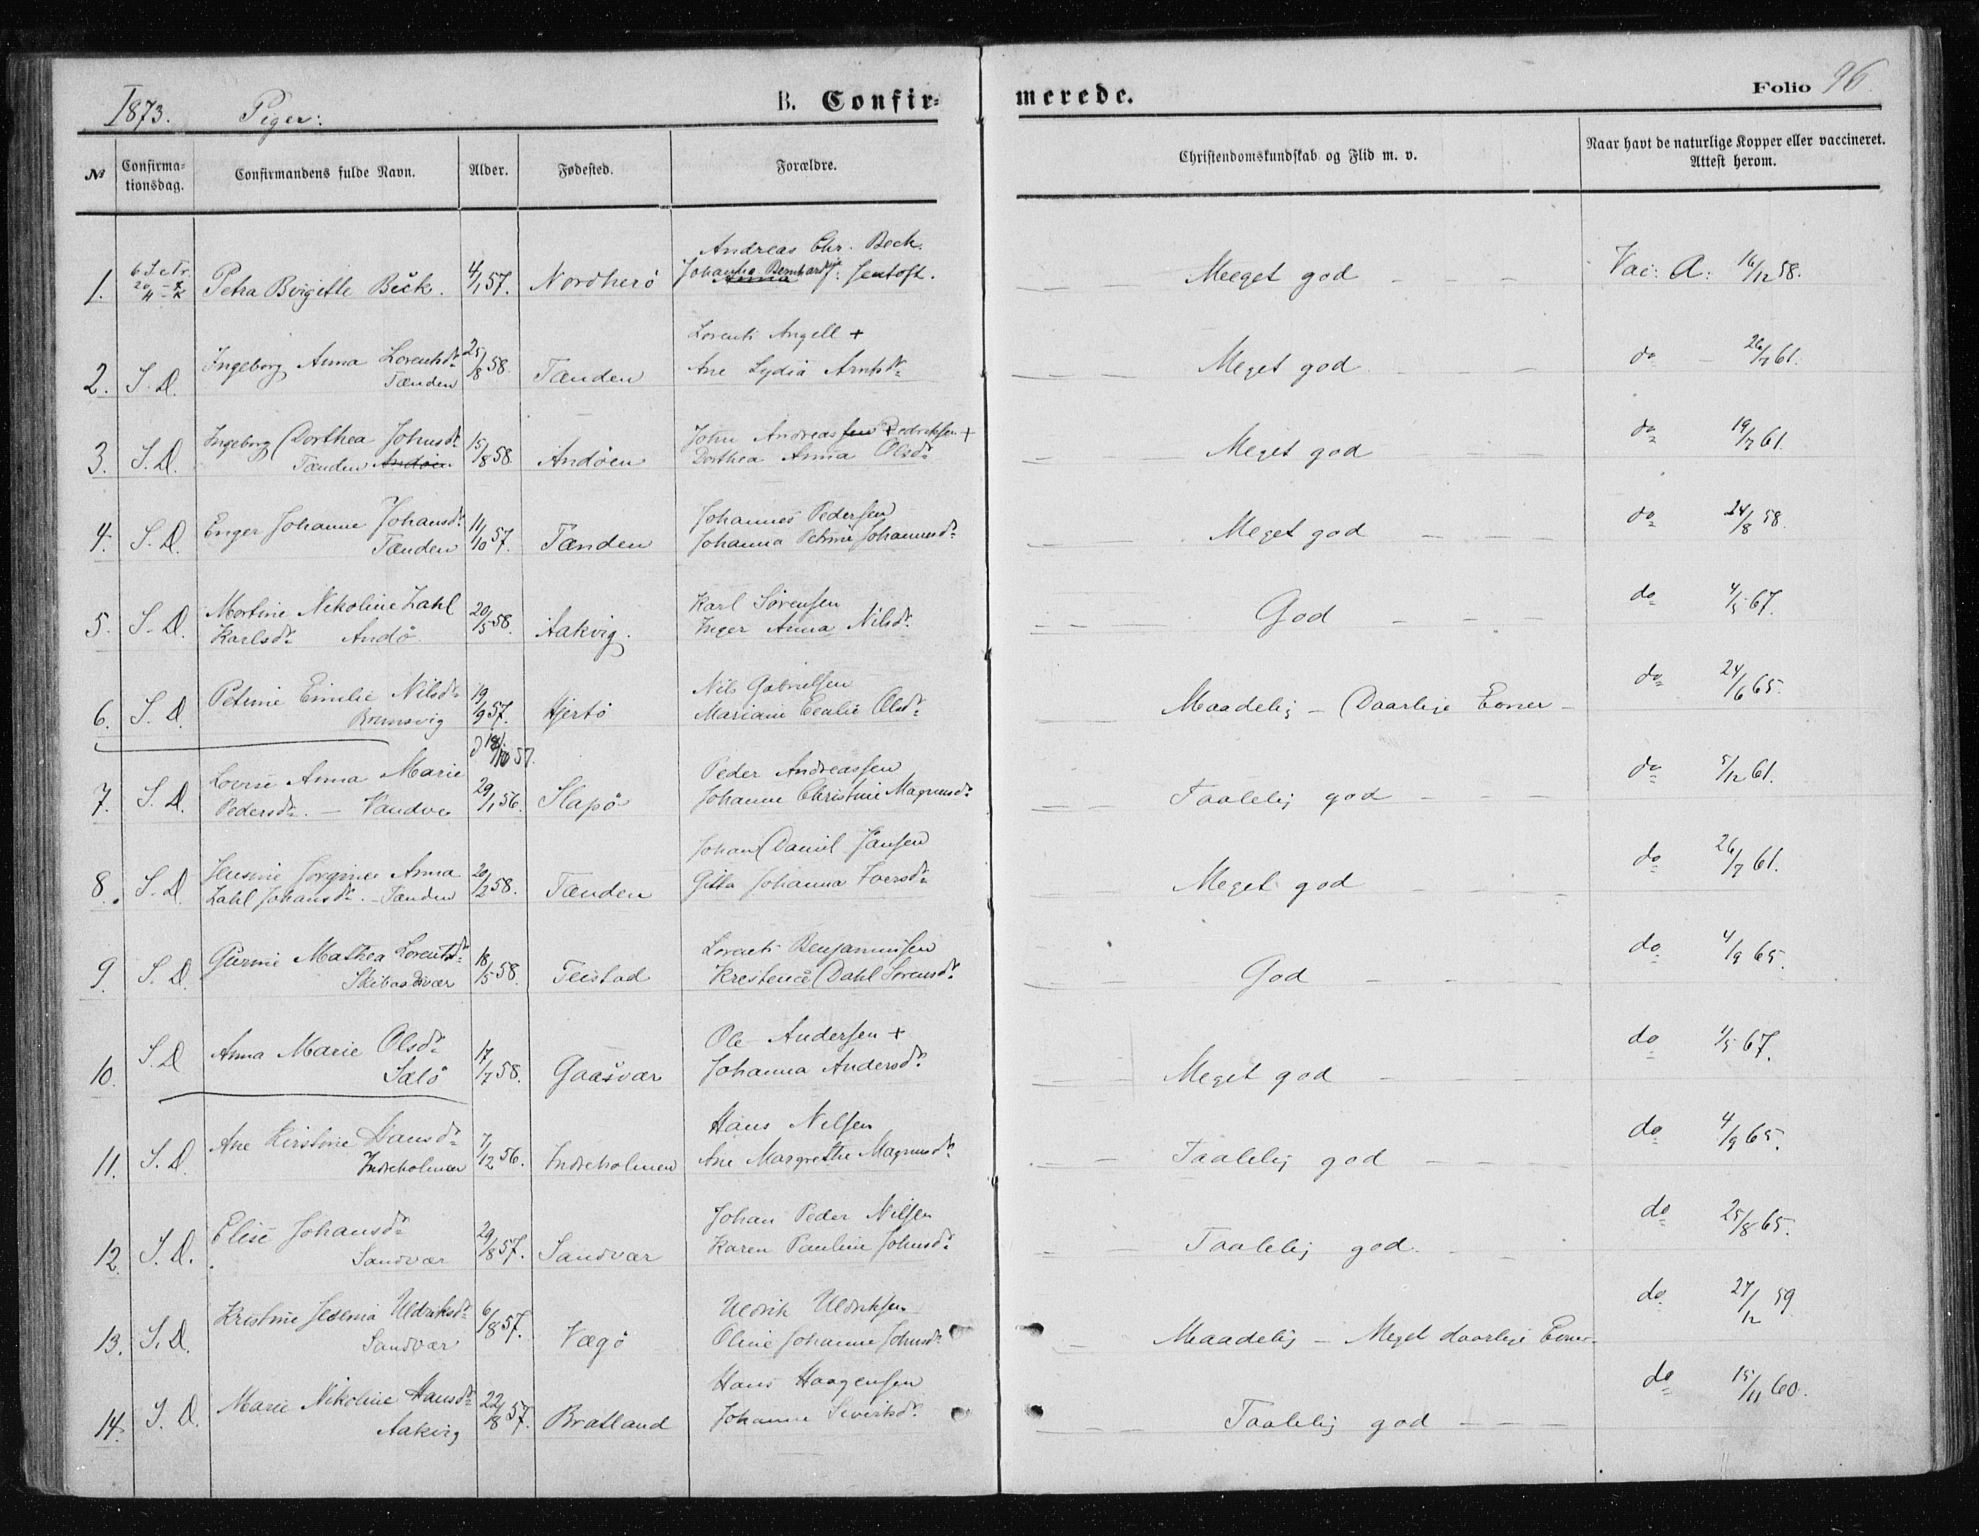 1873. Piger: B. Confir- merede. Folio 96.
№ Confirma-tionsdag. Confirmandens fulde Navn. Alder. Fødested. Forældre. Christendomskundskab og Flid m. v. Naar havt de naturlige Kopper eller vaccineret. Attest herom.
Andreas Chr. Beck.
1. Petra Birgette Beck. 4/1 57. Nordherö Johanna Bernhard Jentoft. Meeget god Vac: A: 16/12 58.
Lorents Angell +
2. S. D. Ingeborg Anna Lorentsdr. 25/8 58. Tænden Ane Lydia Arntsdr. Meget god do 26/7 61.
Tænden
3. S. D. Ingeborg Dorthea Johnsdr. 15/8 58. Andöen John Andreas Pedersen + Meget god do 19/7 61.
Tænden Andöen Dorthea Anna Olsdr.
4. S. D. Enger Johanne Johansdr. 11/10 57. Tænden Johannes Pedersen Meget god do 24/8 58.
Tænden Johanna Petrine Johannesdr.
5. S. D. Martine Nikoline Zahl 20/5 58. Aakvig. Karl Sørensen God do 4/5 67.
Karlsdr. Andö. Inger Anna Nilsdr.
6. S. D. Petrine Emilie Nilsdr. 19/9 57. Hjertö Nils Gabrielsen Maadelig - Daarlige Evner - do 24/6 65.
Brunsvig Mariane Cecilie Olsdr.
18/10 57.
7. S. D. Lovise Anna Marie 29/1 56. Slapö Peder Andreassen Taalelig god do 5/12 61.
Pedersdr. - Vandve Johanne Christine Magnusdr.
8. S. D. Jensine Jorgine Anna 20/2 58. Tænden Johan Daniel Jansen Meget god do 26/7 61.
Zahl Johansdr. - Tænden Gitta Johanna Iversdr.
9. S. D. Gurine Mathea Lorentsdr. 18/5 58. Feistad Lorents Benjaminsen God do 4/9 65.
Skibaasvær Krestence Dahl Sörensdr.
10. S. D. Anna Marie Olsdr. 17/7 58. Gaasvær Ole Andersen + Meget god do 4/5 67.
Salö Johanna Andersdr.
11. S. D. Ane Kirstine Hansdr. 7/12 56. Indreholmen Hans Nilsen Taalelig god do 4/9 65.
Indreholmen Ane Margrethe Magnusdr.
12. S. D. Elise Johansdr. 29/8 57. Sandvær Johan Peder Nilsen Taalelig god. do 25/8 65.
Sandvær Karen Pauline Johnsdr.
13. S. D. Kristine Jesemia Uldriksdr. 6/8 57. Vægö Uldrik Uldriksen Maadelig - Meget daarlige Evner do 27/12 59
Sandvær Oline Johanne Johnsdr.
14. S. D. Marie Nikoline Hansdr. 22/8 57. Bratland Hans Haagensen Taalelig god do 15/11 60.
Aakvig Johanne Sivertsdr.